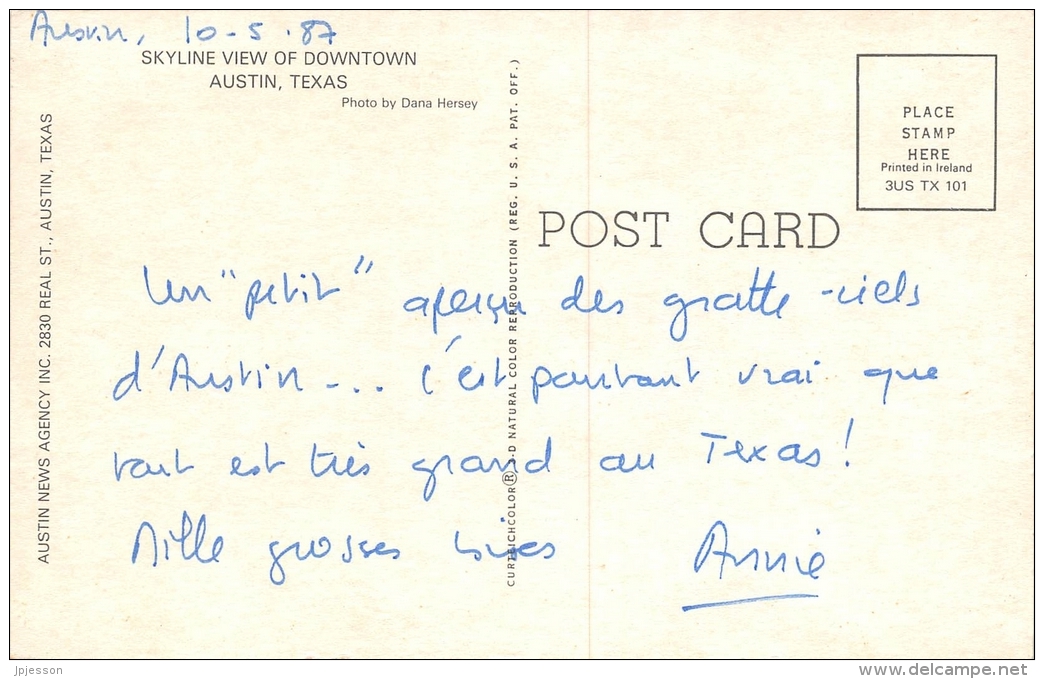 Austin, 10-5.87
SKYLINE VIEW OF DOWNTOWN
AUSTIN, TEXAS
Photo by Dana Hersey
AUSTIN NEWS AGENCY INC. 2830 REAL ST., AUSTIN, TEXAS
CURTEICHCOLOR® 3-D NATURAL COLOR REPRODUCTION (REG. U. S. A. PAT. OFF.)
PLACE
STAMP
HERE
Printed in Ireland
3US TX 101
POST CARD
Un "petit" aperçu des gratte-ciels
d'Austin -.. c'est pourtant vrai que
tout est très grand au Texas !
Mille grosses bises Annie
jpjesson
www.delcampe.net